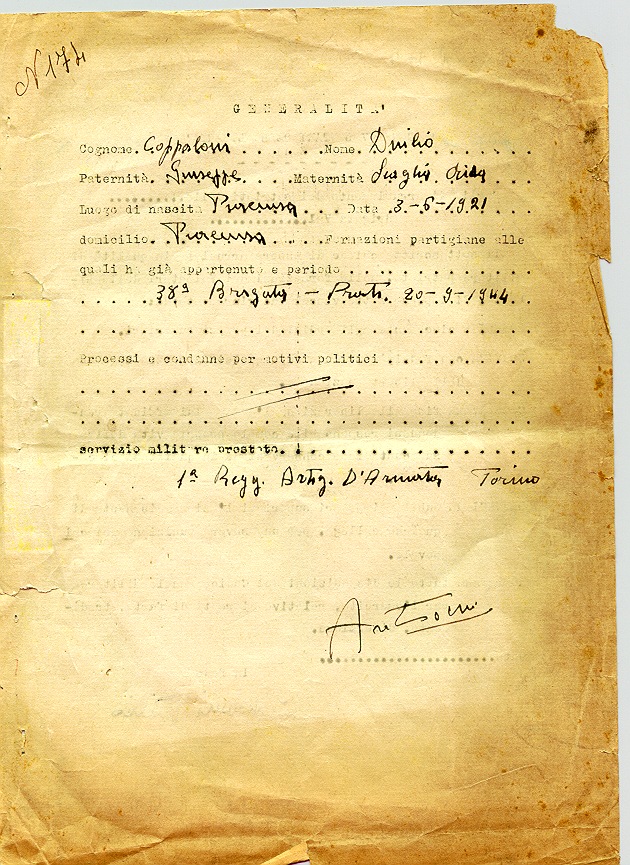 N 174
GENERALITA'
Cognome. Coppaloni . . . . . . Nome. Duilio . . . . . .
Paternità. Giuseppe . . . Maternità
Luogo di nascita Piacenza . . . Data 3-6-1921 . . . .
domicilio. Piacenza . . . . Formazioni partigiane alle
quali ha già appartenuto e periodo . . . . . . . . . . . .
38ª Brigata - Prati. 20-9-1944
Processi e condanne per motivi politici . . . . . . . . . .
servizio militare prestato. . . . . . . . . . . . . . . . .
1ª Regg. Artig. D'Armata Torino